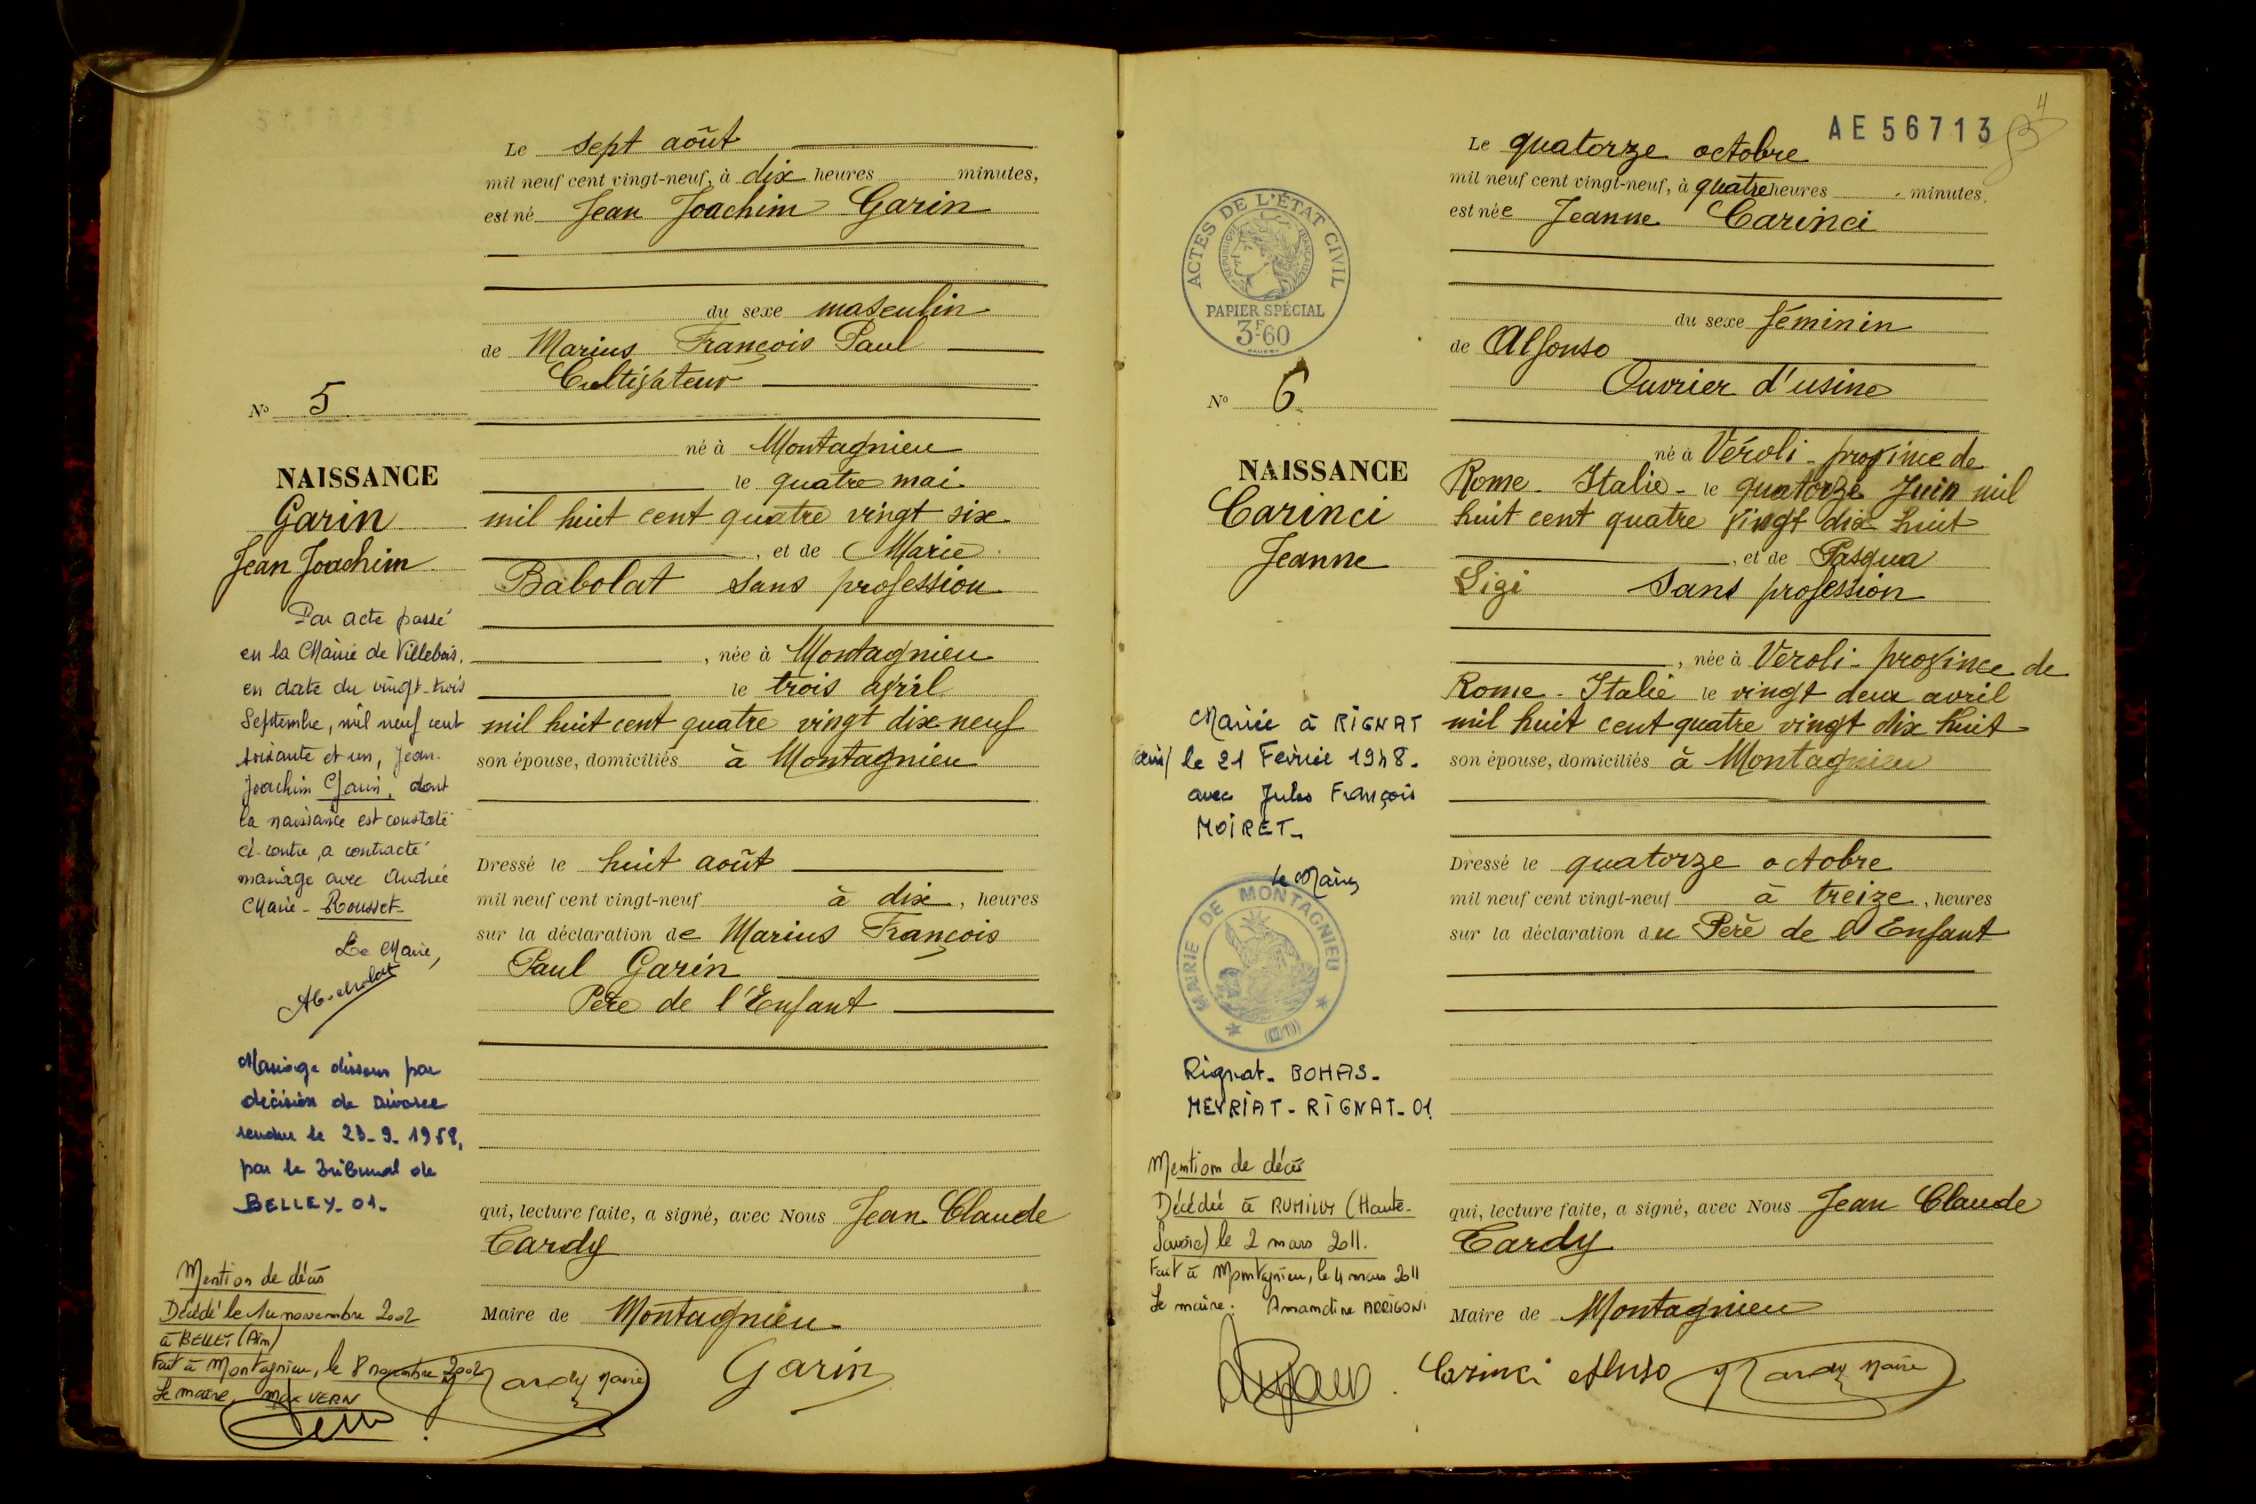 Le sept août
mil neuf cent vingt-neuf, à dix heures minutes,
est né Jean Joachim Garin
du sexe masculin
de Marius François Paul
Cultivateur
N° 5
né à Montagnieu
NAISSANCE
le quatre mai
Garin
mil huit cent quatre vingt six
Jean Joachim
, et de Marie
Babolat sans profession
Par acte passé
en la Mairie de Villebois,
, née à Montagnieu
en date du vingt-trois
le trois avril
Septembre, mil neuf cent
mil huit cent quatre vingt dix neuf
soixante et un, Jean-
son épouse, domiciliés à Montagnieu
Joachim Garin, dont
la naissance est constatée
ci-contre, a contracté
mariage avec Andrée
Marie - Rousset-
Dressé le huit août
mil neuf cent vingt-neuf à dix, heures
sur la déclaration de Marius François
Le Maire,
Paul Garin
Père de l'Enfant
Mariage dissous par
décision de Divorce
rendue le
par le Tribunal de
BELLEY. 01-
qui, lecture faite, a signé, avec Nous Jean Claude
Cardy
Mention de décès
Décédé le 1er novembre 2002
à BELLEY (Ain)
Fait à Montagnieu, le 8 novembre 2002
Le maire, Max VERN
Maire de Montagnieu
Cardy Maire
Garin
AE56713
4
Le quatorze octobre
mil neuf cent vingt-neuf, à quatre heures minutes,
est née Jeanne Carinci
ACTES DE L'ÉTAT CIVIL
RÉPUBLIQUE FRANÇAISE
PAPIER SPÉCIAL
3F60
du sexe féminin
de Alfonso
Ouvrier d'usine
N° 6
né à Véroli - province de
NAISSANCE
Rome - Italie - le quatorze Juin mil
Carinci
huit cent quatre vingt dix huit
Jeanne
, et de Pasqua
Ligi Sans profession
, née à Véroli - province de
Rome - Italie le vingt deux avril
mil huit cent quatre vingt dix huit
son épouse, domiciliés à Montagnieu
Mariée à RIGNAT
(Ain) le 21 Février 1948.
avec Jules François
MOIRET-
le Maire
MAIRIE DE MONTAGNIEU
(AIN)
Dressé le quatorze octobre
mil neuf cent vingt-neuf à treize, heures
sur la déclaration du Père de l'Enfant
Rignat - BOHAS-
MEYRIAT - RIGNAT - 01.
Mention de décès
Décédée à RUMILLY (Haute-
Savoie) le 2 mars 2011.
Fait à Montagnieu, le 4 mars 2011
Le maire: Amandine ARRIGONI
qui, lecture faite, a signé, avec Nous Jean Claude
Cardy
Maire de Montagnieu
Carinci
Cardy Maire